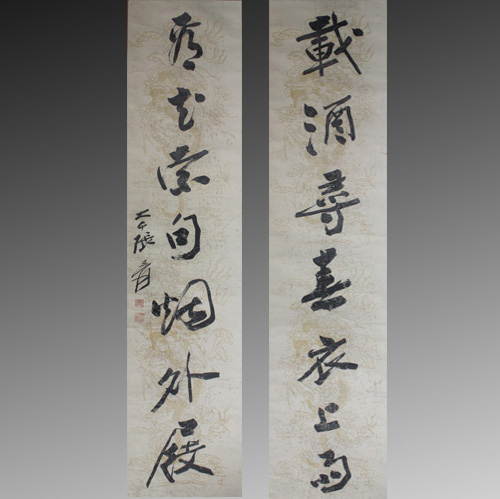 載酒尋春衣上雨
看花索句烟外屐
大千張爰